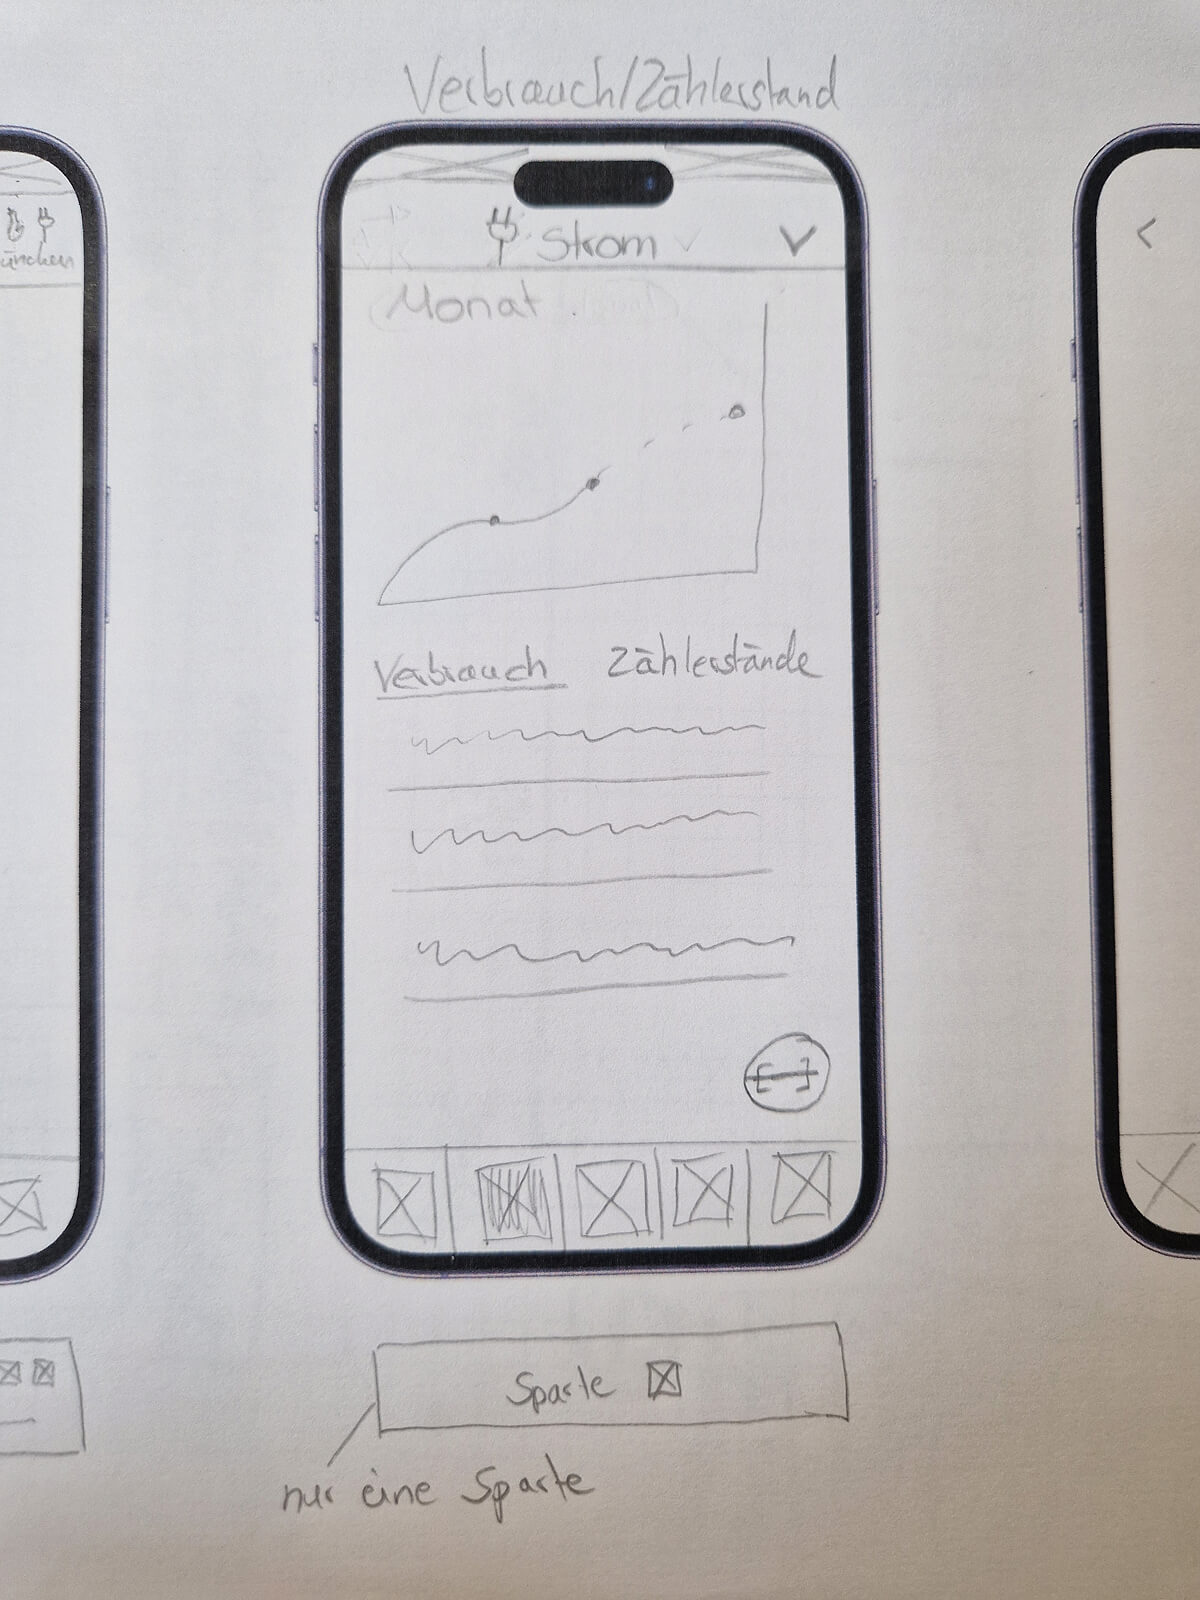 Verbrauch/Zählerstand
Strom
Monat
Verbrauch Zählerstände
Sparte
nur eine Sparte